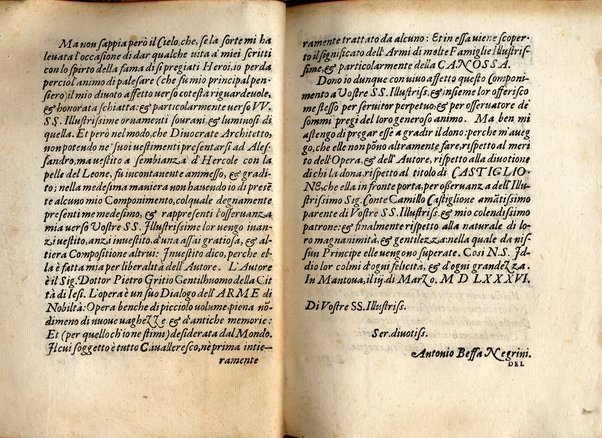 Ma non sappia però il Cielo, che, se la sorte mi ha
leuata l'occasione di dar qualche vita à miei scritti
con lo spirto della fama di sì pregiati Heroi, io perda
perciò l'animo di palesare (che fu mio principal pen-
siero) il mio diuoto affetto verso cotesta riguardeuole,
& honorata schiatta: & particolarmente verso VV.
SS. Illustrissime ornamenti sourani, & luminosi di
quella. Et però nel modo, che Dinocrate Architetto,
non potendo ne' suoi vestimenti presentarsi ad Ales-
sandro, ma vestito a sembianza d'Hercole con la
pelle del Leone, fu incontanente ammesso, & gradi-
to: nella medesima maniera non hauendo io di prese̅
te alcuno mio Componimento, colquale degnamente
presenti me medesimo, & rappresenti l'osseruanza
mia verso Vostre SS. Illustrissime lor uengo inan-
zi uestito, anzi inuestito, d'una assai gratiosa, & al-
tiera Compositione altrui: Inuestito dico, perche el-
la è fatta mia per liberalità dell'Autore. L'Autore
è il Sig. Dottor Pietro Gritio Gentilhuomo della Cit
tà di Iesi. L'opera è un suo Dialogo dell'ARME di
Nobiltà: Opera benche di picciolo volume, piena nō
dimeno di nuoue vaghezze & d'antiche memorie:
Et (per quello ch'io ne stimi) desiderata dal Mondo.
Il cui soggetto è tutto Caualleresco, nè prima intie-
ramente
ramente trattato da alcuno: Et in essa viene scoper-
to il significato dell'Armi di molte Famiglie Illustris-
sime, & particolarmente della CANOSSA.
Dono io dunque con uiuo affetto questo Componi-
mento a Vostre SS. Illustriss. & insieme lor offerisco
me stesso per seruitor perpetuo; & per osseruatore de'
sommi pregi del loro generoso animo. Ma ben mi
astengo di pregar esse a gradir il dono: perche m'aueg-
go, che elle non pōno altramente fare, rispetto al meri-
to dell'Opera, & dell'Autore, rispetto alla diuotione
di chi la dona, rispetto al titolo di CASTIGLIO-
NE che ella in fronte porta, per osseruanza dell'Illu-
strissimo Sig. Conte Camillo Castiglione amātissimo
parente di Vostre SS. Illustriss. & mio colendissimo
patrone: & finalmente rispetto alla naturale di lo-
ro magnanimità, & gentilezza: nella quale da nis-
sun Principe elle vengono superate. Così N.S. Id-
dio lor colmi d'ogni felicità, & d'ogni grandezza.
In Mantoua, il iij. di Marzo. M D LXXXVI.
Di Vostre SS. Illustriss.
Ser. diuotiss.
Antonio Beffa Negrini.
DEL